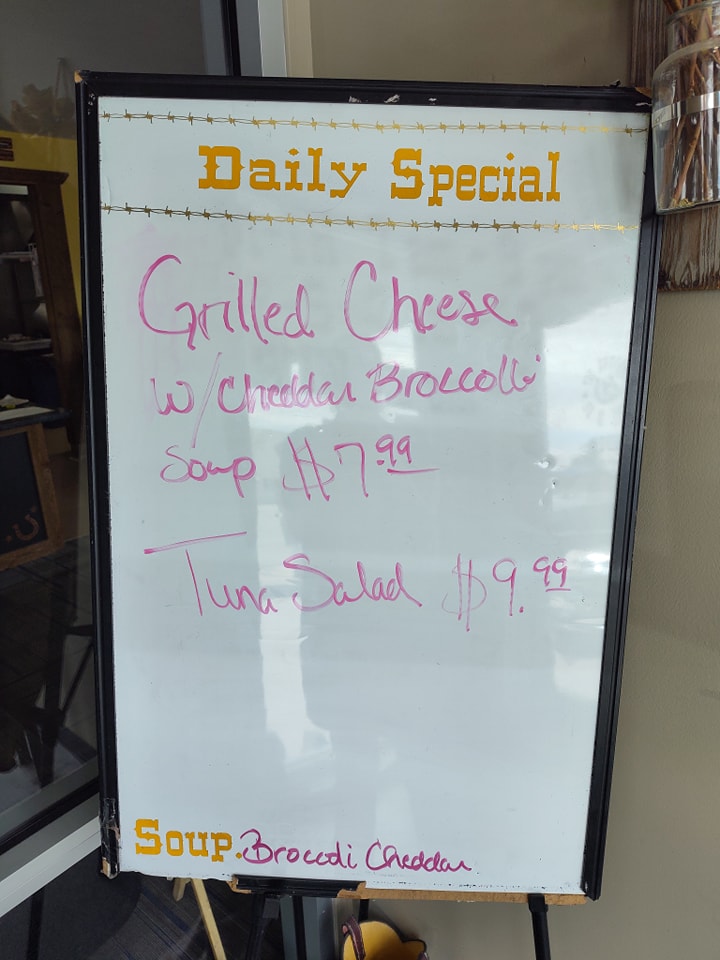 Daily Special
Grilled Cheese
w/ Cheddar Broccolli
Soup $7.99
Tuna Salad $9.99
Soup. Broccoli Cheddar